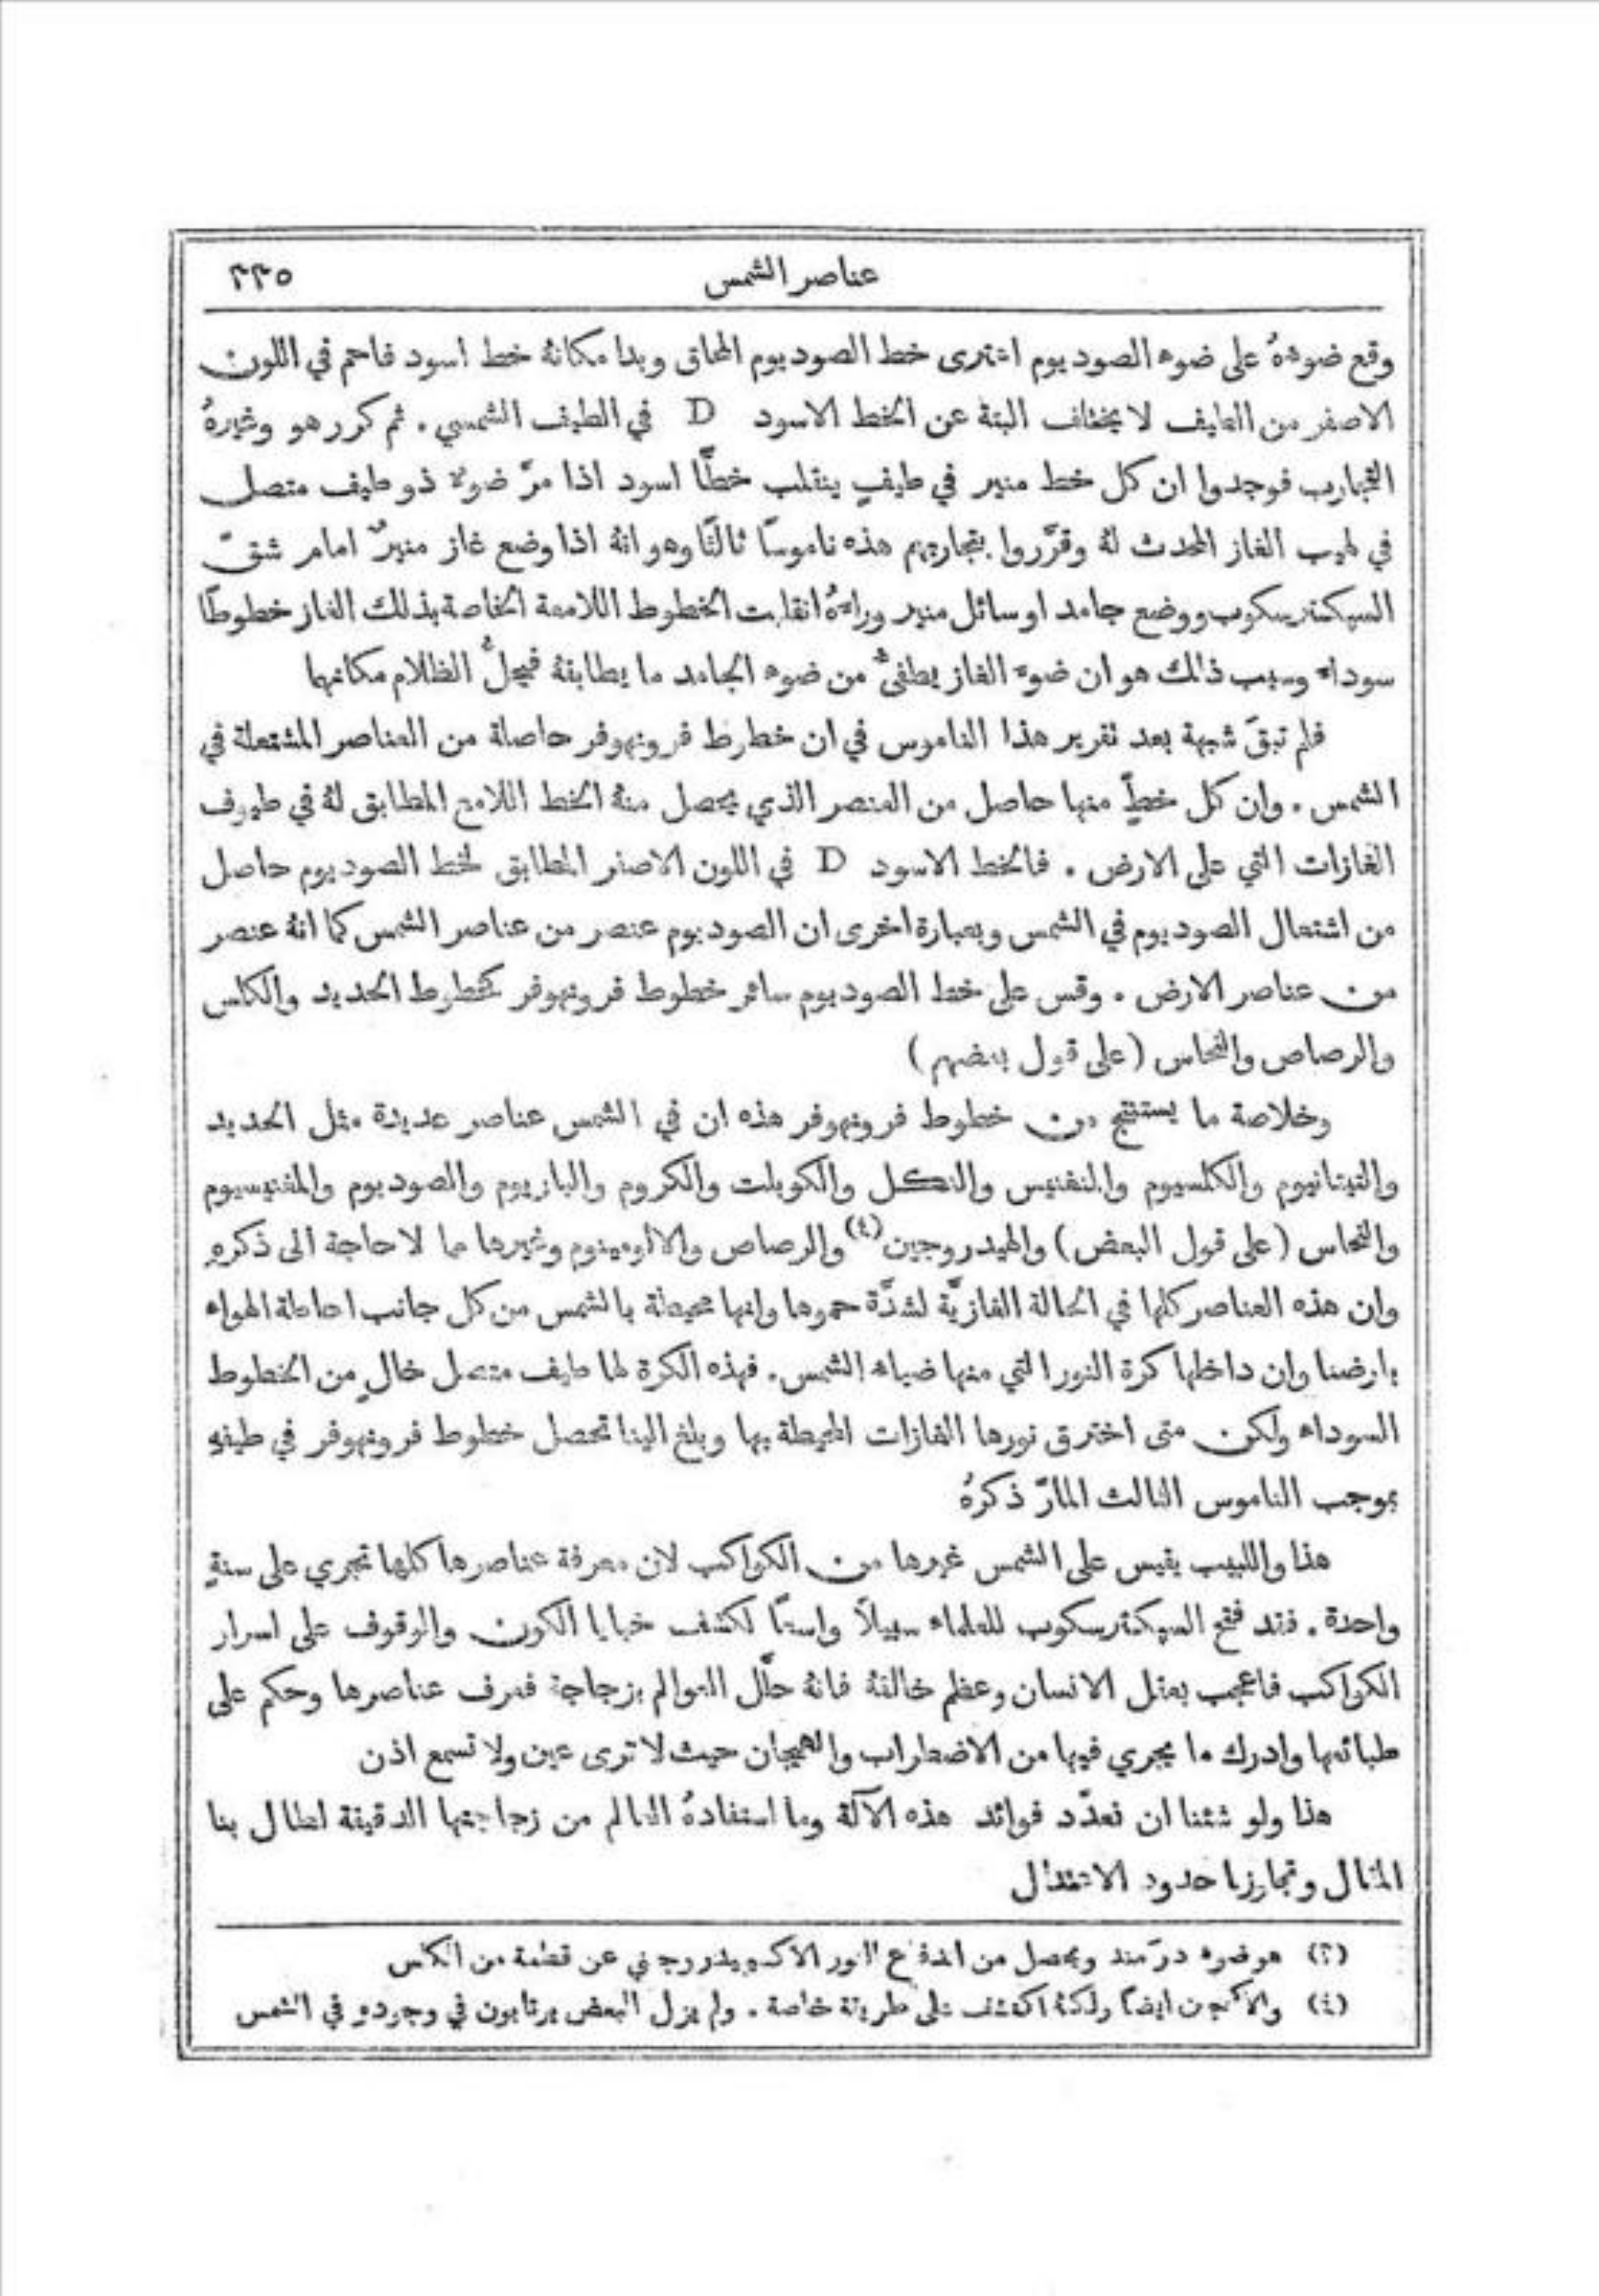 عناصر الشمس ٢٣٥
وقع ضوءهُ على ضوء الصوديوم اختفى خط الصوديوم وبدا مكانهُ خط اسود فاحم في اللون
الاصفر من الطيف لا يختلف البتة عن الخط الاسود D في الطيف الشمسي . ثم كرر هو وغيرهُ
التجارب فوجدوا ان كل خط منير في طيفٍ ينقلب خطًّا اسود اذا مرَّ ضوءٌ ذو طيف متصل
في لهيب الغاز المحدث لهُ وقرَّروا بتجاربهم هذه ناموسًا ثالثًا وهو انهُ اذا وضع غاز منيرٌ امام شقّ
السپكترسكوب ووضع جامد او سائل منير وراءهُ انقلبت الخطوط اللامعة الخاصة بذلك الغاز خطوطًا
سوداء وسبب ذلك هو ان ضوء الغاز يطفئُ من ضوء الجامد ما يطابقهُ فيحلُّ الظلام مكانهما
فلم تبقَ شبهة بعد تقرير هذا الناموس في ان خطوط فرونهوفر حاصلة من العناصر المشتعلة في
الشمس . وان كل خطٍّ منها حاصل من العنصر الذي يحصل منهُ الخط اللامع المطابق لهُ في طيوف
الغازات التي على الارض . فالخط الاسود D في اللون الاصفر المطابق لخط الصوديوم حاصل
من اشتعال الصوديوم في الشمس وبعبارة اخرى ان الصوديوم عنصر من عناصر الشمس كما انهُ عنصر
من عناصر الارض . وقس على خط الصوديوم سائر خطوط فرونهوفر كخطوط الحديد والكلس
والرصاص والنحاس (على قول بعضهم)
وخلاصة ما يستنتج من خطوط فرونهوفر هذه ان في الشمس عناصر عديدة مثل الحديد
والتيتانيوم والكلسيوم والمنغنيس والنكل والكوبلت والكروم والباريوم والصوديوم والمغنيسيوم
والنحاس (على قول البعض) والهيدروجين(٤) والرصاص والالومينوم وغيرها مما لا حاجة الى ذكرهِ
وان هذه العناصر كلها في الحالة الغازيَّة لشدَّة حموها وانها محيطة بالشمس من كل جانب احاطة الهواء
بارضنا وان داخلها كرة النور التي منها ضياء الشمس. فهذه الكرة لها طيف متصل خالٍ من الخطوط
السوداء ولكن متى اخترق نورها الغازات المحيطة بها وبلغ الينا تحصل خطوط فرونهوفر في طيفهِ
بموجب الناموس الثالث المارّ ذكرهُ
هذا واللبيب يقيس على الشمس غيرها من الكواكب لان معرفة عناصرها كلها تجري على سنةٍ
واحدة . فقد فتح السپكترسكوب للعلماء سبيلًا واسعًا لكشف خبايا الكون والوقوف على اسرار
الكواكب فاعجب بعقل الانسان وعظم خالقهُ فانهُ حلَّل العوالم بزجاجة فعرف عناصرها وحكم على
طبائعها وادرك ما يجري فيها من الاضطراب والهيجان حيث لا ترى عين ولا تسمع اذن
هذا ولو شئنا ان نعدّد فوائد هذه الآلة وما استفادهُ العالم من زجاجتها الدقيقة لطال بنا
المقال وتجاوزنا حدود الاعتدال
(٣) هو ضوء درّمند ويحصل من اندفاع النور الاكسويدروجيني عن قطعة من الكلس
(٤) والاكسجن ايضًا ولكنهُ اكتشف على طريقة خاصة . ولم يزل البعض يرتابون في وجودهِ في الشمس